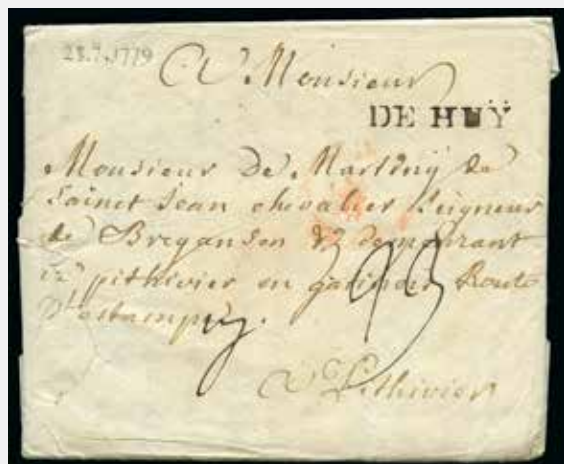 28.9.1779
A Monsieur
DE HUŸ
Monsieur De Martiny de
Sainct Jean chevalier Seigneur
de Breganson & demeurant
a pithivier en gatinois Route
D'estampes.
23
A Pithivier